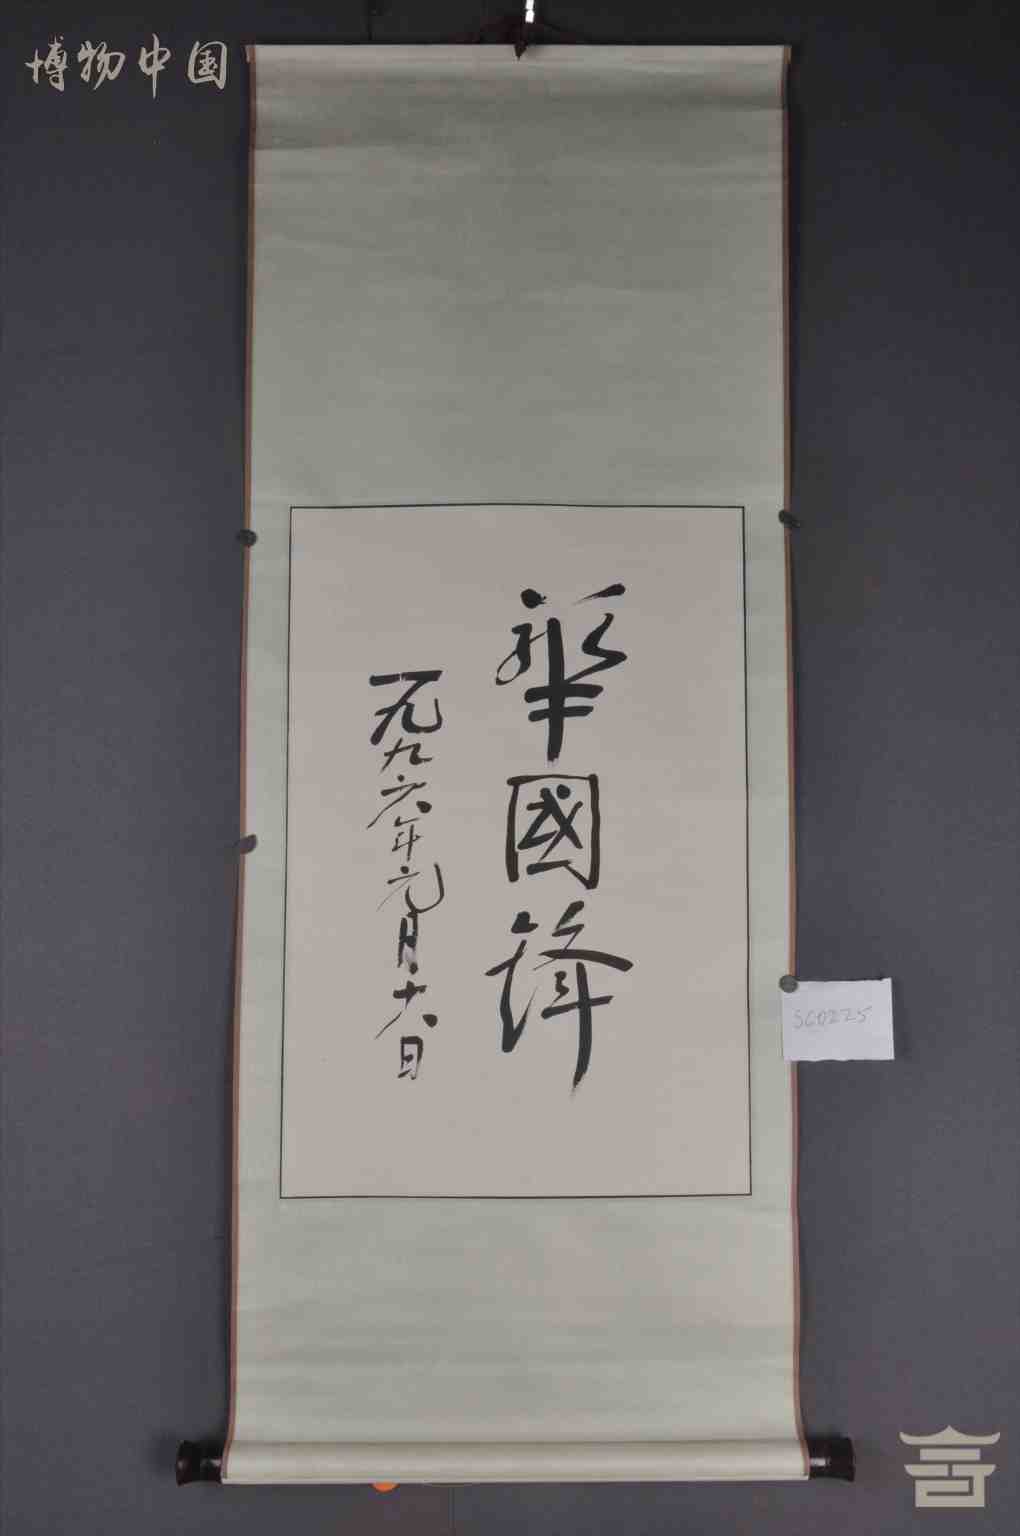 博物中国
華國鋒
一九九六年元月十六日
SG0225